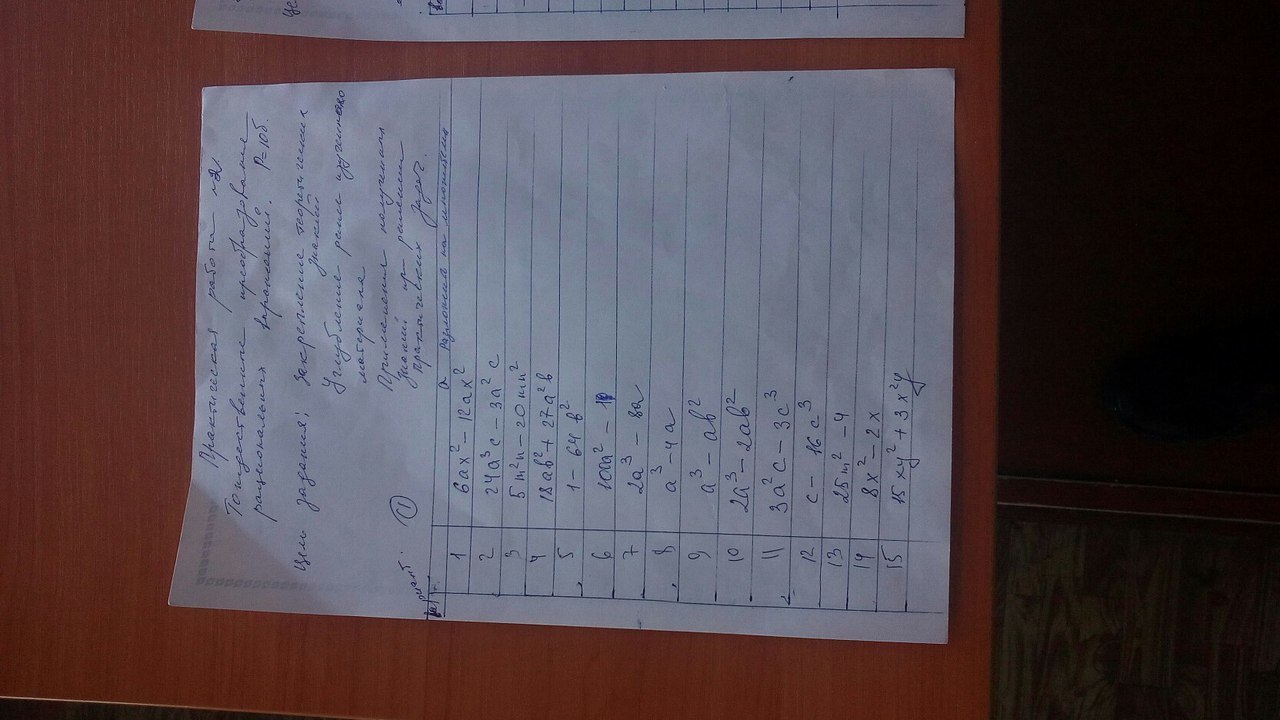 Практическая работа №2
Тождественные преобразование
рациональных выражений. Р-10б.
Цели задания: Закрепление теоретических
знаний
Углубление ранее изученного
материала
Применение полученных
знаний при решении
практических задач.
риант. ①
а Разложить на множители
1 6ax² - 12ax²
2 24a³c - 3a²c
3 5m²n - 20mn²
4 18ab² + 27a²b
5 1 - 64b²
6 100a² - 1
7 2a³ - 8a
8 a³ - 4a
9 a³ - ab²
10 2a³ - 2ab²
11 3a²c - 3c³
12 c - 16c³
13 25m² - 4
14 8x² - 2x
15 15xy² + 3x²y